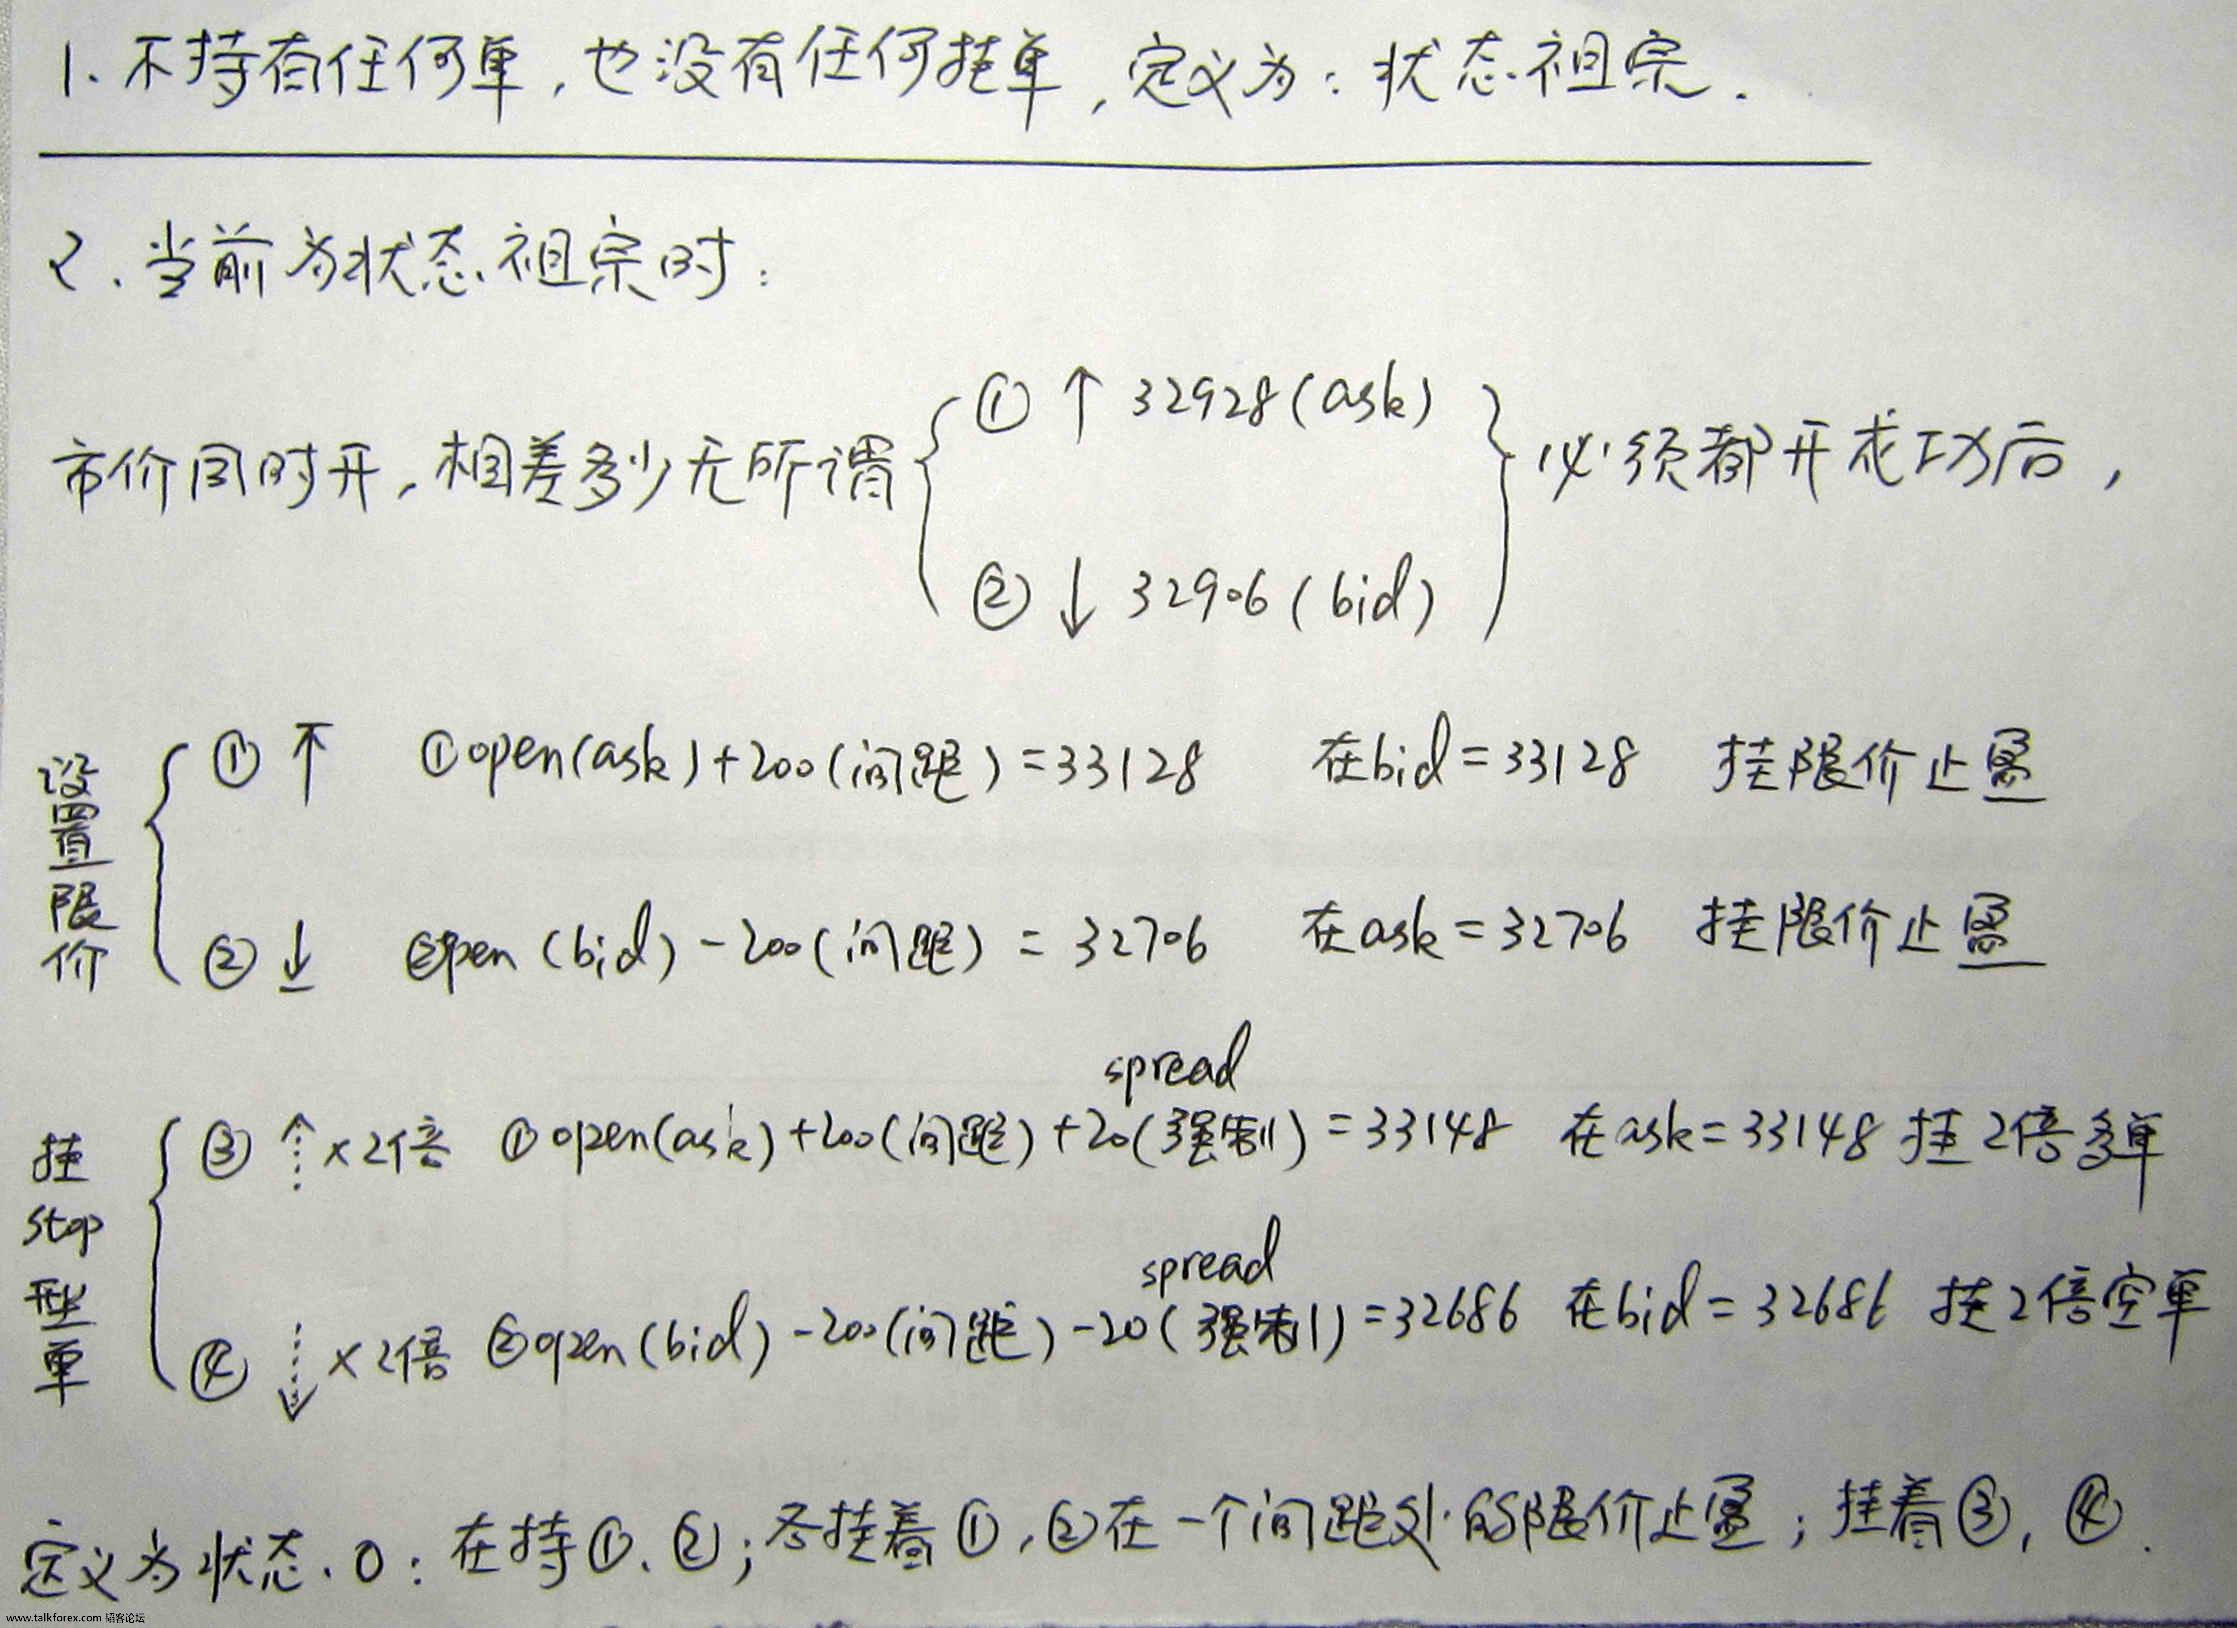 1. 不持有任何单，也没有任何挂单，定义为：状态祖宗.
2. 当前为状态祖宗时：
市价同时开，相差多少无所谓 { ① ↑ 32928(ask) ② ↓ 32906(bid) } 必须都开成功后，
设置限价
① ↑ ①open(ask)+200(间距)=33128 在bid=33128 挂限价止盈
② ↓ ②open(bid)-200(间距)=32706 在ask=32706 挂限价止盈
挂stop型单
spread
③ ↑ ×2倍 ①open(ask)+200(间距)+20(强制)=33148 在ask=33148 挂2倍多单
spread
④ ↓ ×2倍 ②open(bid)-200(间距)-20(强制)=32686 在bid=32686 挂2倍空单
定义为状态0：在持①、②；各挂着①，②在一个间距处的限价止盈；挂着③，④.
www.talkforex.com 韬客论坛